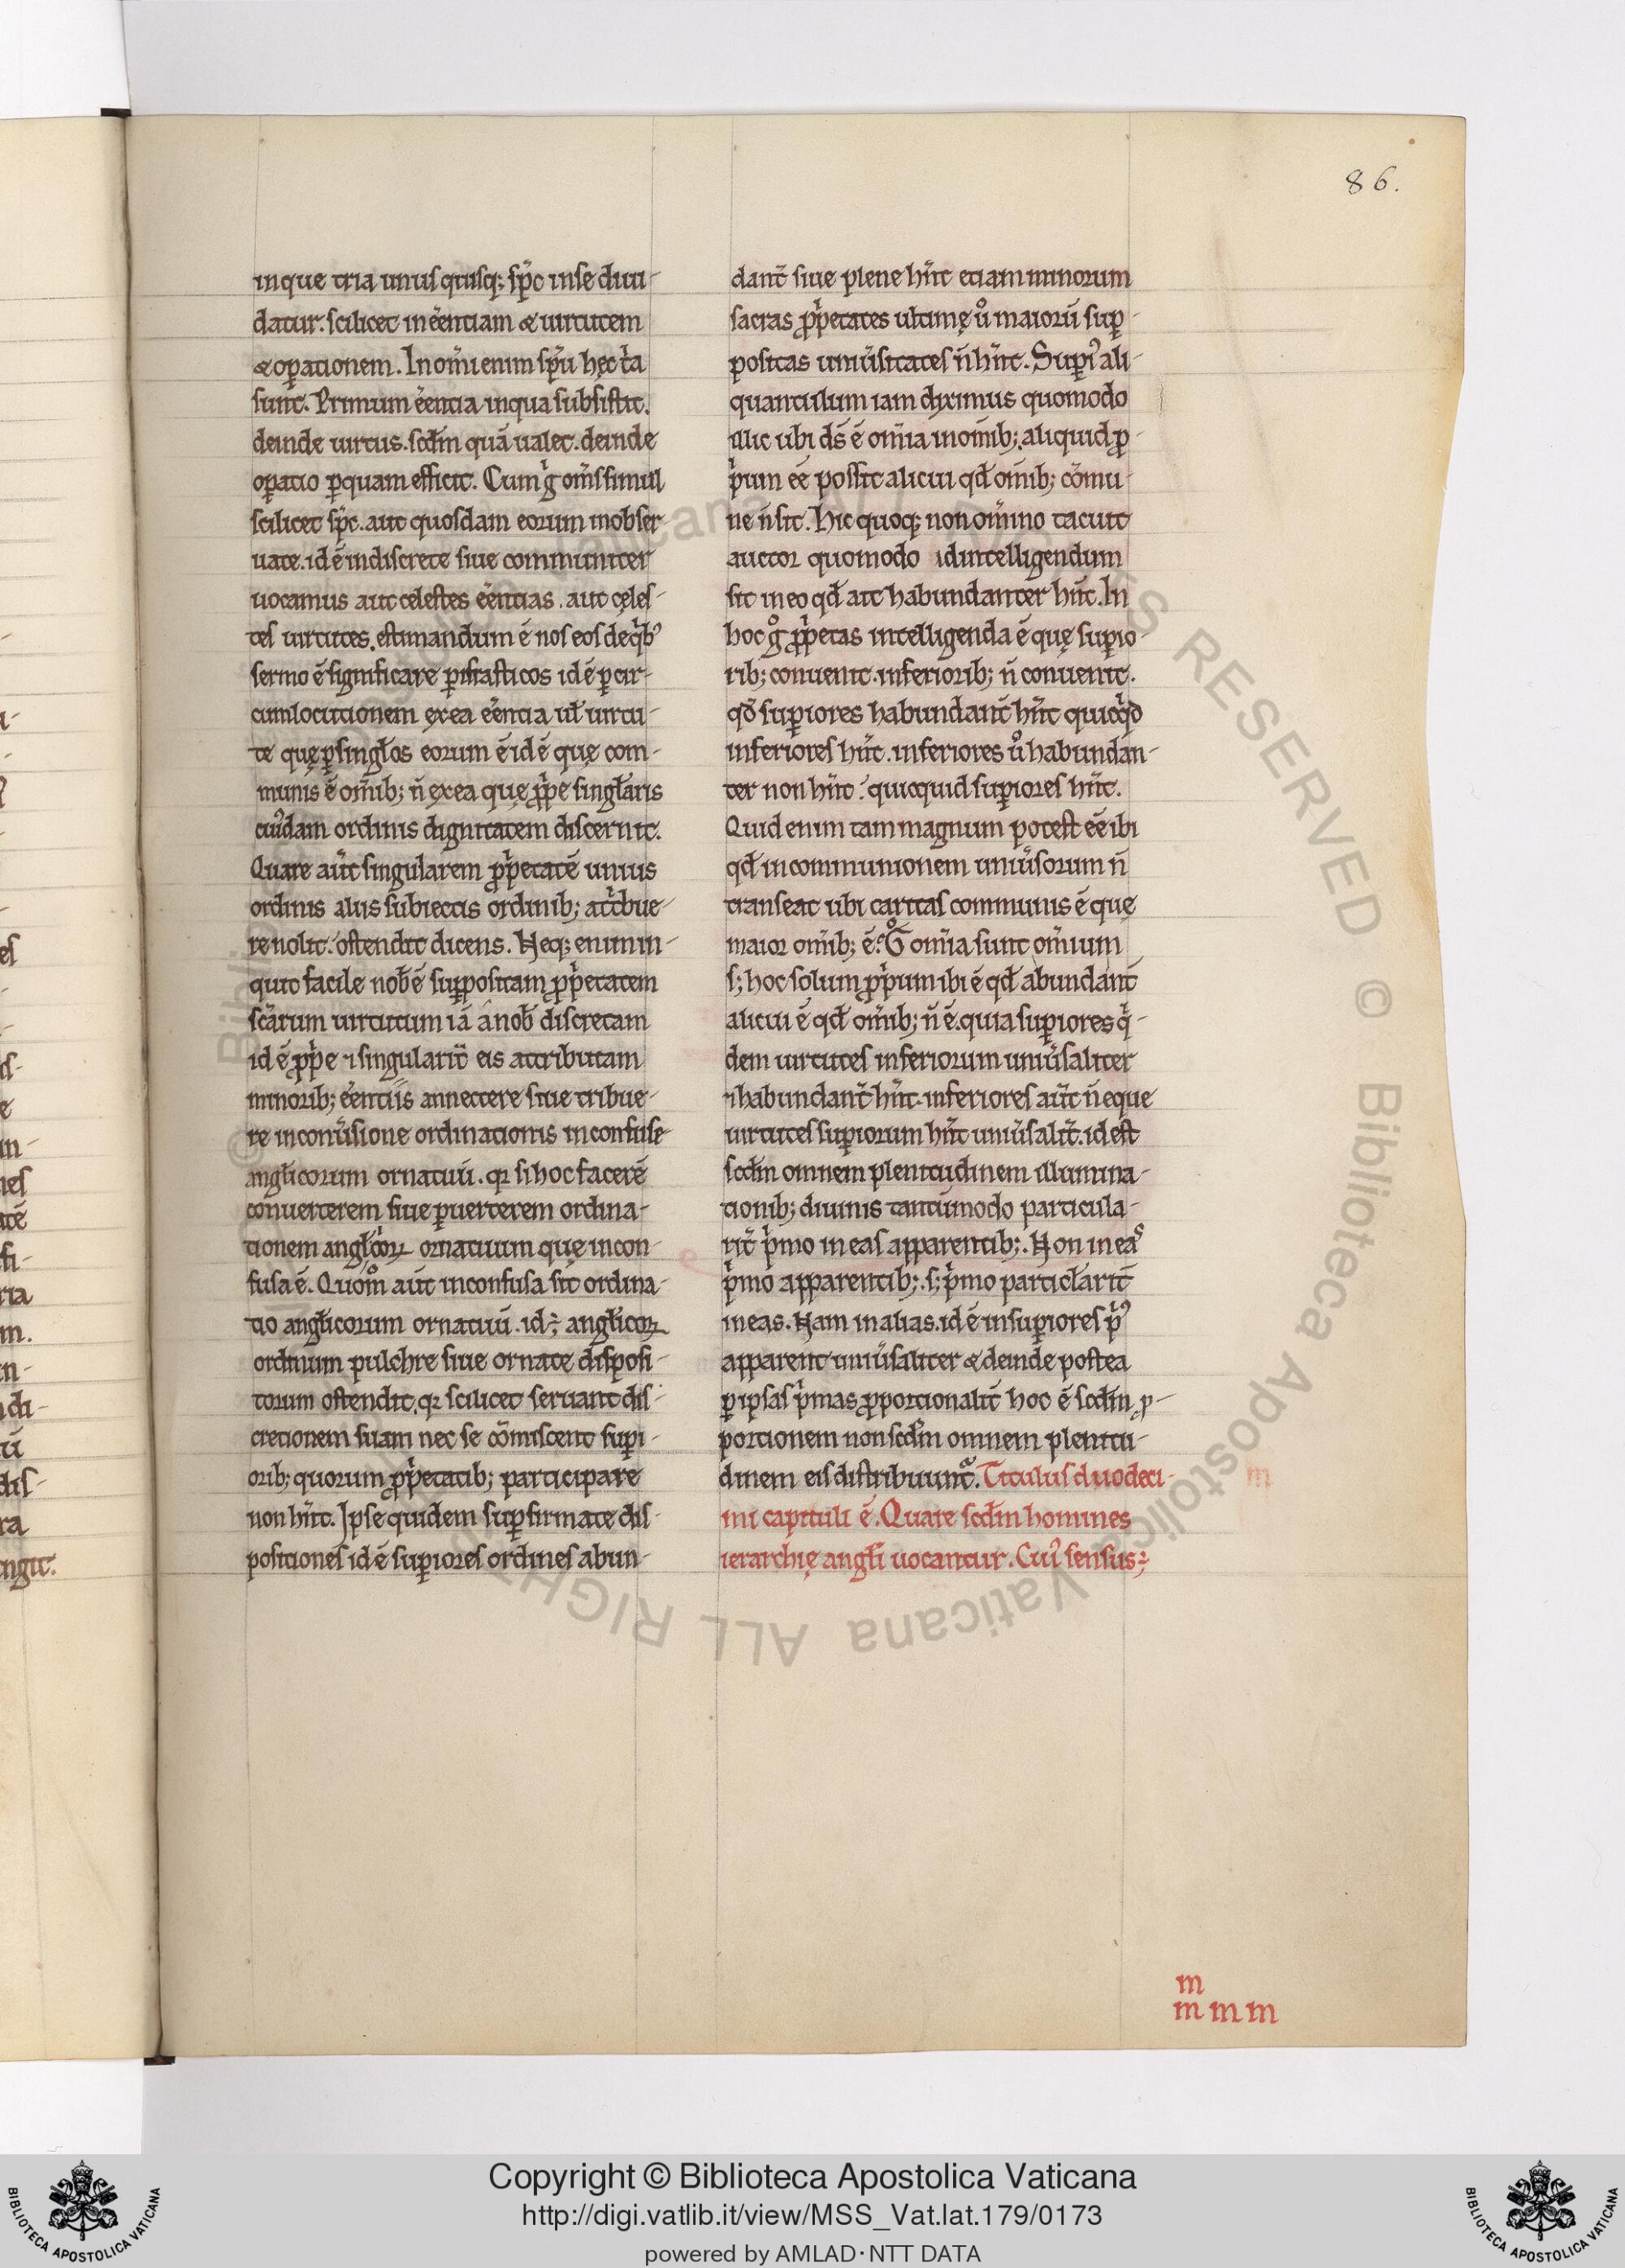 86.
inque tria unusquisq; sp̄c inse diui-
datur. scilicet in ēentiam & uirtutem
& op̱ationem. In om̄i enim sp̄u hęc t͛a
sunt. Primum ēentia inqua subsistit.
deinde uirtus. scd̄m quā ualet. deinde
op̱atio p̱quam efficit. Cum g͛ om̄s simul
scilicet sp̄c. aut quosdam eorum inobser-
uate. id ē indiscrete siue communiter
uocamus aut celestes ēentias. aut cęles-
tes uirtutes. estimandum ē nos eos deq͛b᾽
sermo ē significare p̱ifrasticos id ē p̱cir-
cumlocutionem ęxea ēentia ul̄ uirtu-
te quę p̱singl̄os eorum ē id ē quę com-
munis ē om̄ib; n̄ ęxea quę p̄p͛e singl̄aris
cui᾽dam ordinis dignitatem discernit.
Quare aūt singularem p̄p͛etatē unius
ordinis aliis subiectis ordinib; att͛bue-
re nolit. ostendit dicens. Neq; enim in-
quit facile nob̄ ē sup̱positam p̄p͛etatem
sc̄arum uirtutum iā a nob̄ discretam
id ē p̄p͛e ⁊ singularit̄ eis attributam
minorib; ēentiis annectere siue tribue-
re in conu̾sione ordinationis inconfuse
angl̄icorum ornatuū. qꝛ si hoc facerē
conuerterem siue p̱uerterem ordina-
tionem angl̄icoꝝ ornatuum quę incon-
fusa ē. Quom̊ aūt inconfusa sit ordina-
tio angl̄icorum ornatuū. id ÷ angl̄icoꝝ
ordinum pulchre siue ornate disposi-
torum ostendit. qꝛ scilicet seruant dis-
cretionem suam nec se cōmiscent sup̱i-
orib; quorum p̄p͛etatib; participare
non hn̄t. Ipse quidem sup̱firmate dis-
positiones id ē sup̱iores ordines abun-
dant̄ siue plene hn̄t etiam minorum
sacras p̄p͛etates ultimę u̾o maiorū sup̱-
positas uniu̾sitates n̄ hn̄t. Sup̱i᾽ ali-
quantulum iam diximus quomodo
illic ubi ds̄ ē om̄ia in om̄ib; aliquid p̄-
p͛ium ēe possit alicui qd̄ om̄ib; cōmu-
ne n̄ sit. Hic quoq; non om̄ino tacuit
auctor quomodo id intelligendum
sit in eo qd̄ ait habundanter hn̄t. In
hoc g̊ p̄p͛etas intelligenda ē quę sup̱io-
rib; conuenit. inferiorib; n̄ conuenit.
qd̄ sup̱iores habundant̄ hn̄t quicq͛d
inferiores hn̄t. inferiores u̾o habundan-
ter non hn̄t quicquid sup̱iores hn̄t.
Quid enim tam magnum potest ēe ibi
qd̄ in communionem uniu̾sorum n̄
transeat ubi caritas communis ē quę
maior om̄ib; ē. G̊ om̄ia sunt om̄ium
s; hoc solum p̄p͛ium ibi ē qd̄ abundant̄
alicui ē qd̄ om̄ib; n̄ ē. quia sup̱iores q͛-
dem uirtutes inferiorum uniu̾saliter
⁊ habundant̄ hn̄t. inferiores aūt n̄ eque
uirtutes sup̱iorum hn̄t uniu̾salit̄. id est
scd̄m omnem plenitudinem illumina-
tionib; diuinis tantūmodo particula-
rit̄ p͛mo in eas apparentib;. Non in eas
p͛mo apparentib;. s; p͛mo particl̄arit̄
in eas. Nam in alias. id ē in sup̱iores p͛᾽
apparent uniu̾saliter & deinde postea
p̱ ipsas p͛mas p̄portionalit̄ hoc ē scd̄m p̄-
portionem non scd̄m omnem plenitu-
dinem eis distribuunt᷑. Titulus duodeci-
mi capituli ē. Quare scd̄m homines
ierarchię angl̄i uocantur. Cui᾽ sensus ÷
m
m m m
Copyright © Biblioteca Apostolica Vaticana
http://digi.vatlib.it/view/MSS_Vat.lat.179/0173
powered by AMLAD·NTT DATA
BIBLIOTECA APOSTOLICA VATICANA
BIBLIOTECA APOSTOLICA VATICANA
© Biblioteca Apostolica Vaticana ALL RIGHTS RESERVED